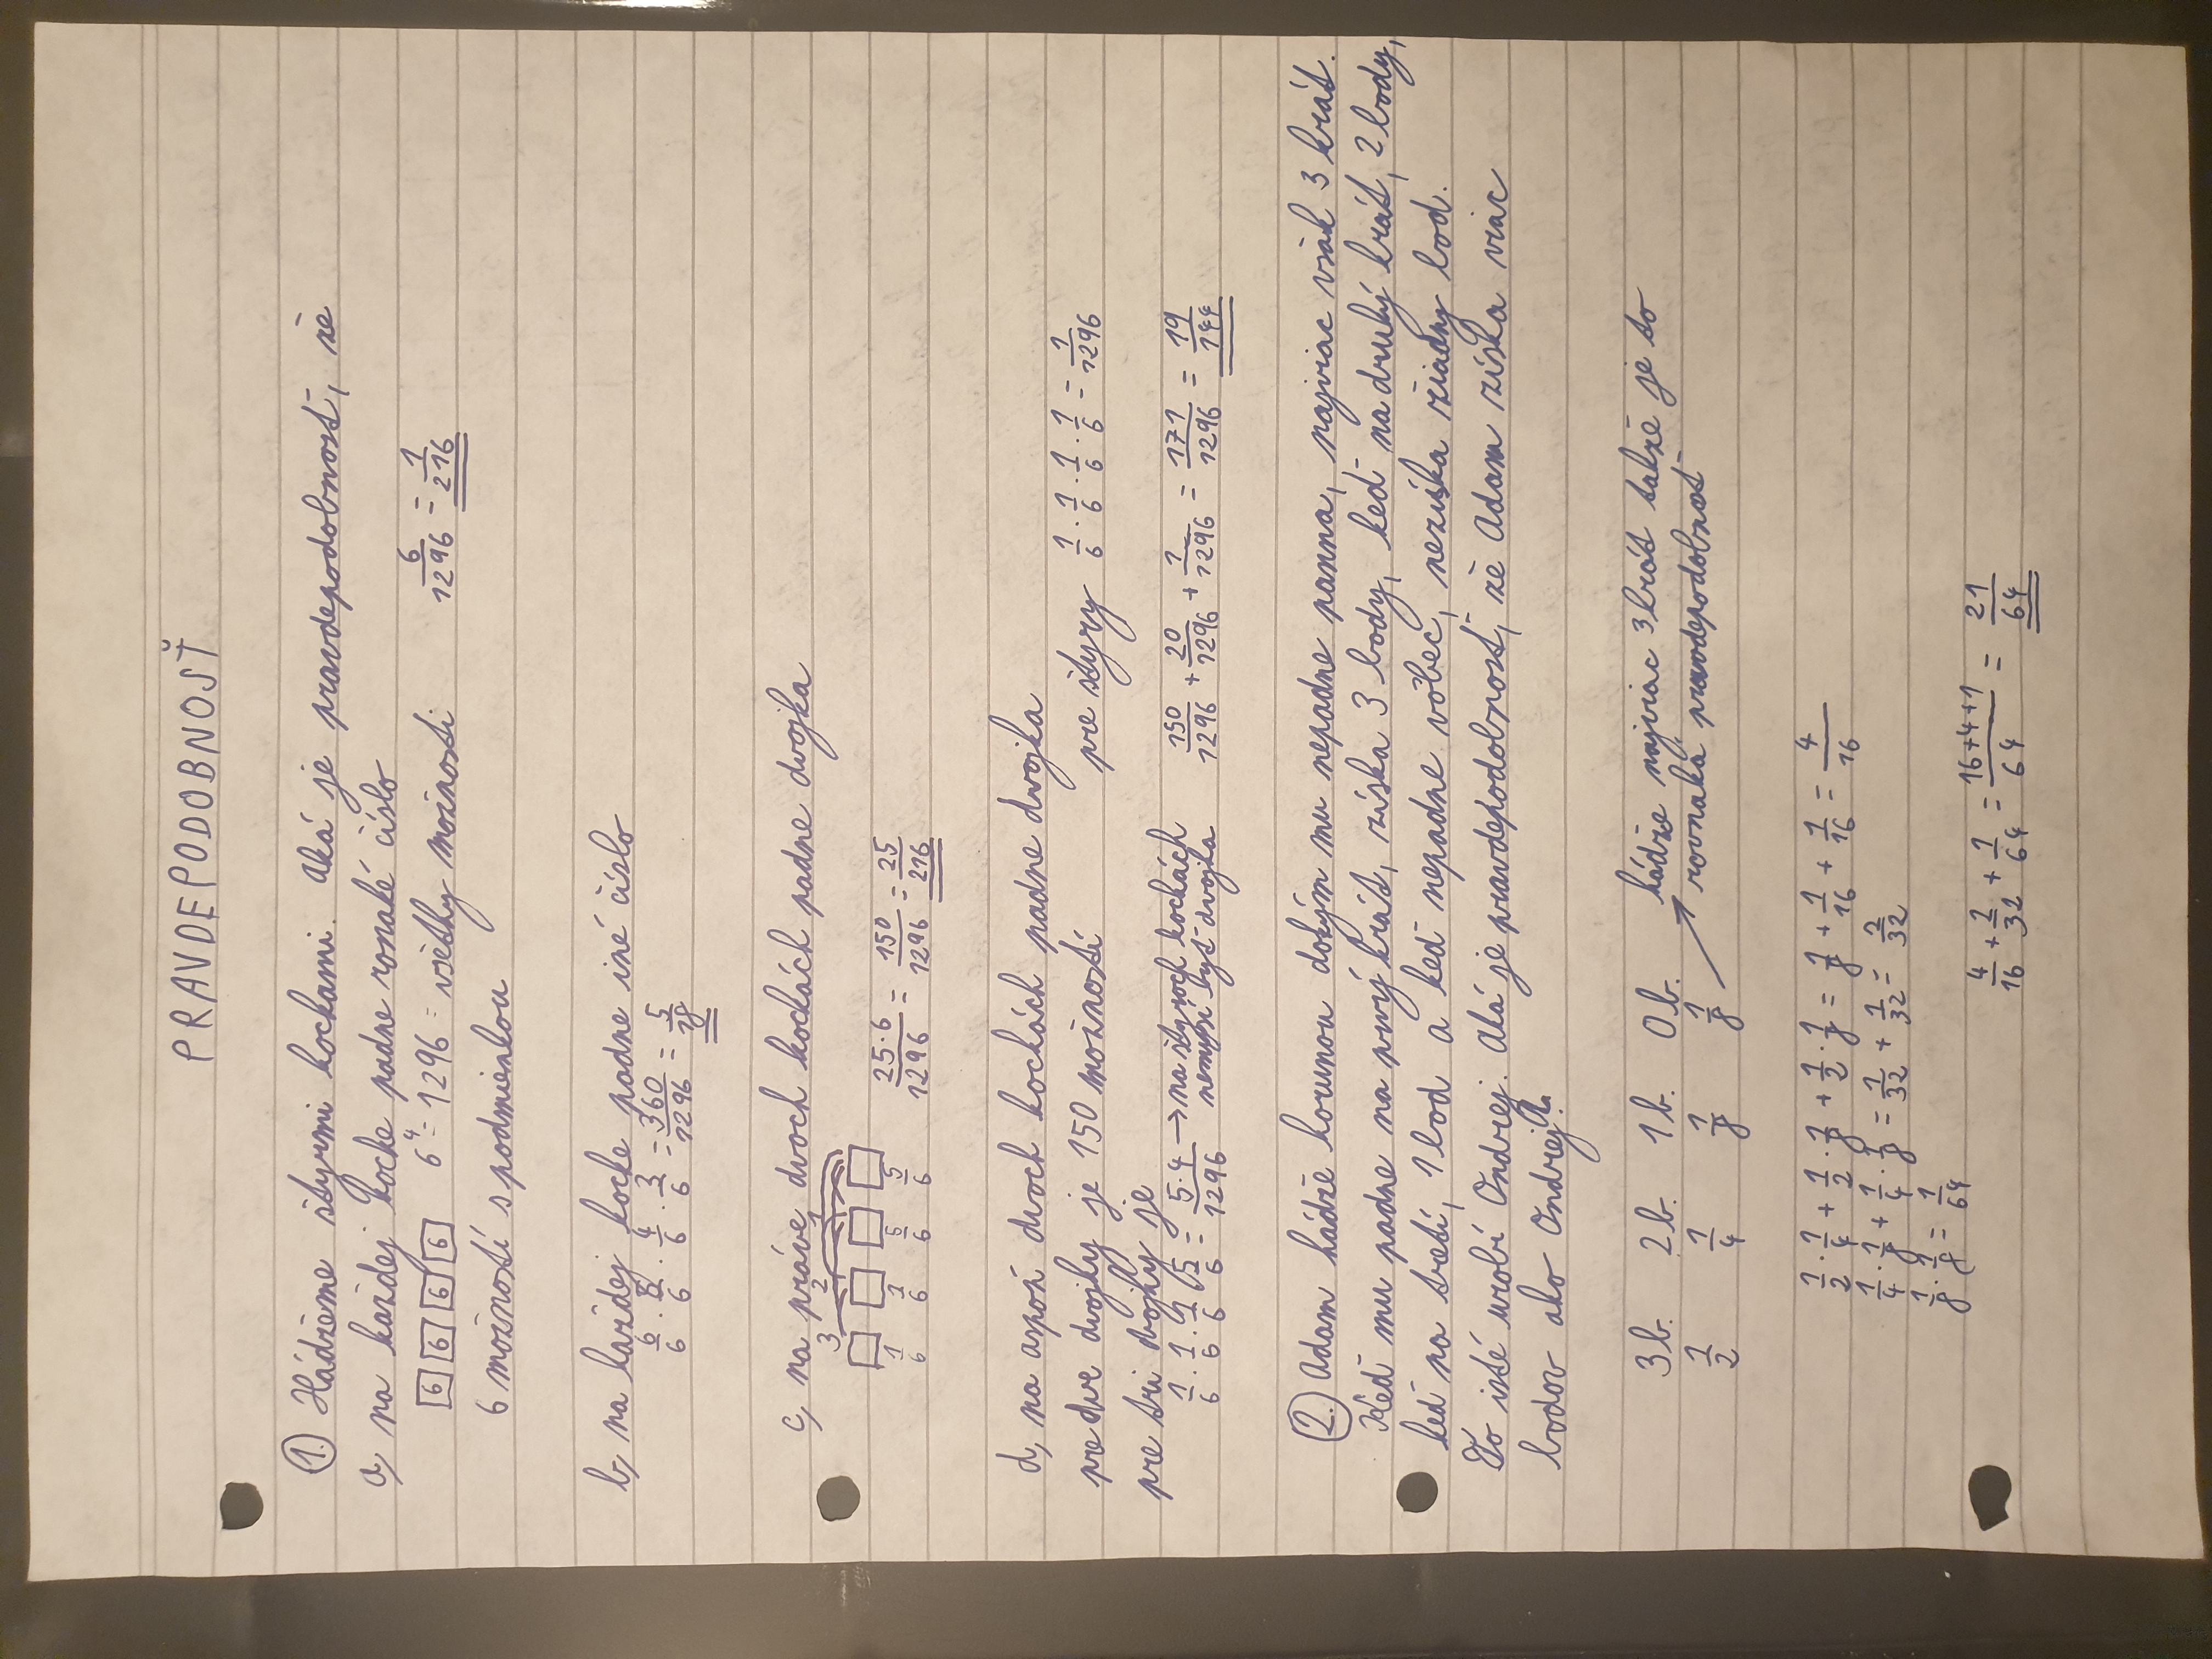 PRAVDEPODOBNOSŤ
1. Hádžeme štyrmi kockami. Aká je pravdepodobnosť, že
a, na každej kocke padne ronaké číslo
6 6 6 6 6⁴ = 1296 = všetky možnosti 6/1296 = 1/216
6 možností s podmienkou
b, na každej kocke padne iné číslo
6/6 · 5/6 · 4/6 · 3/6 = 360/1296 = 5/18
c, na práve dvoch kockách padne dvojka
3 2 1
1/6 1/6 5/6 5/6 25·6/1296 = 150/1296 = 25/216
d, na aspoň dvoch kockách padne dvojka
pre dve dvojky je 150 možností pre štyry 1/6 · 1/6 · 1/6 · 1/6 = 1/1296
pre tri dvojky je
1/6 · 1/6 · 1/6 · 5/6 = 5·4/1296 → na štyroch kockách nemusí byť dvojka 150/1296 + 20/1296 + 1/1296 = 171/1296 = 19/144
2. Adam hádže korunou dokým mu nepadne panna, najviac však 3 krát.
Keď mu padne na prvý krát, získa 3 body, keď na druhý krát, 2 body,
keď na tretí, 1 bod a keď nepadne vôbec, nezíska žiadny bod.
To isté urobí Ondrej. Aká je pravdepodobnosť, že Adam získa viac
bodov ako Ondrej?
3b. 2b. 1b. 0b. hádže najviac 3 krát takže je to
1/2 1/4 1/8 1/8 rovnaká pravdepodobnosť
1/2 · 1/4 + 1/2 · 1/8 + 1/2 · 1/8 = 1/8 + 1/16 + 1/16 = 4/16
1/4 · 1/8 + 1/4 · 1/8 = 1/32 + 1/32 = 2/32
1/8 · 1/8 = 1/64
4/16 + 2/32 + 1/64 = 16+4+1/64 = 21/64